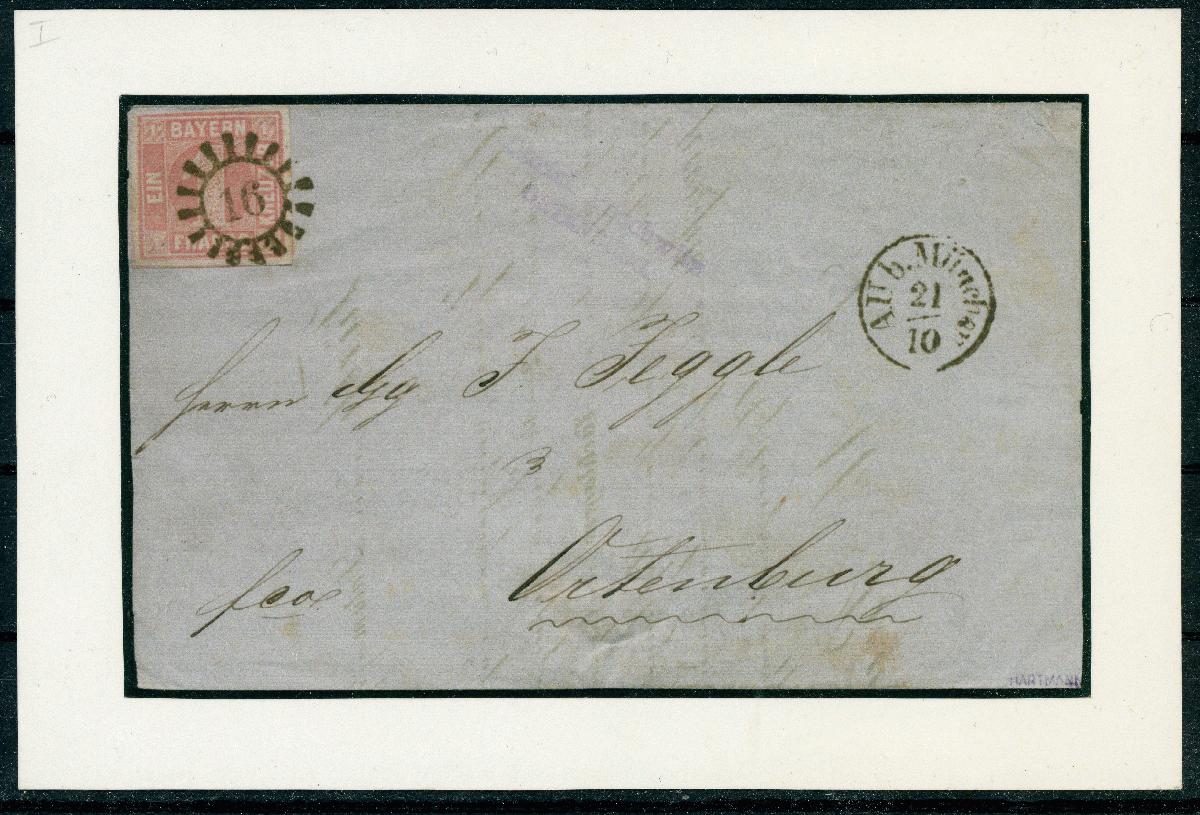 I
BAYERN
EIN
16
AU b. München
21
10
Herrn Gg F. Jeggle
fco
Ortenburg
HARTMANN